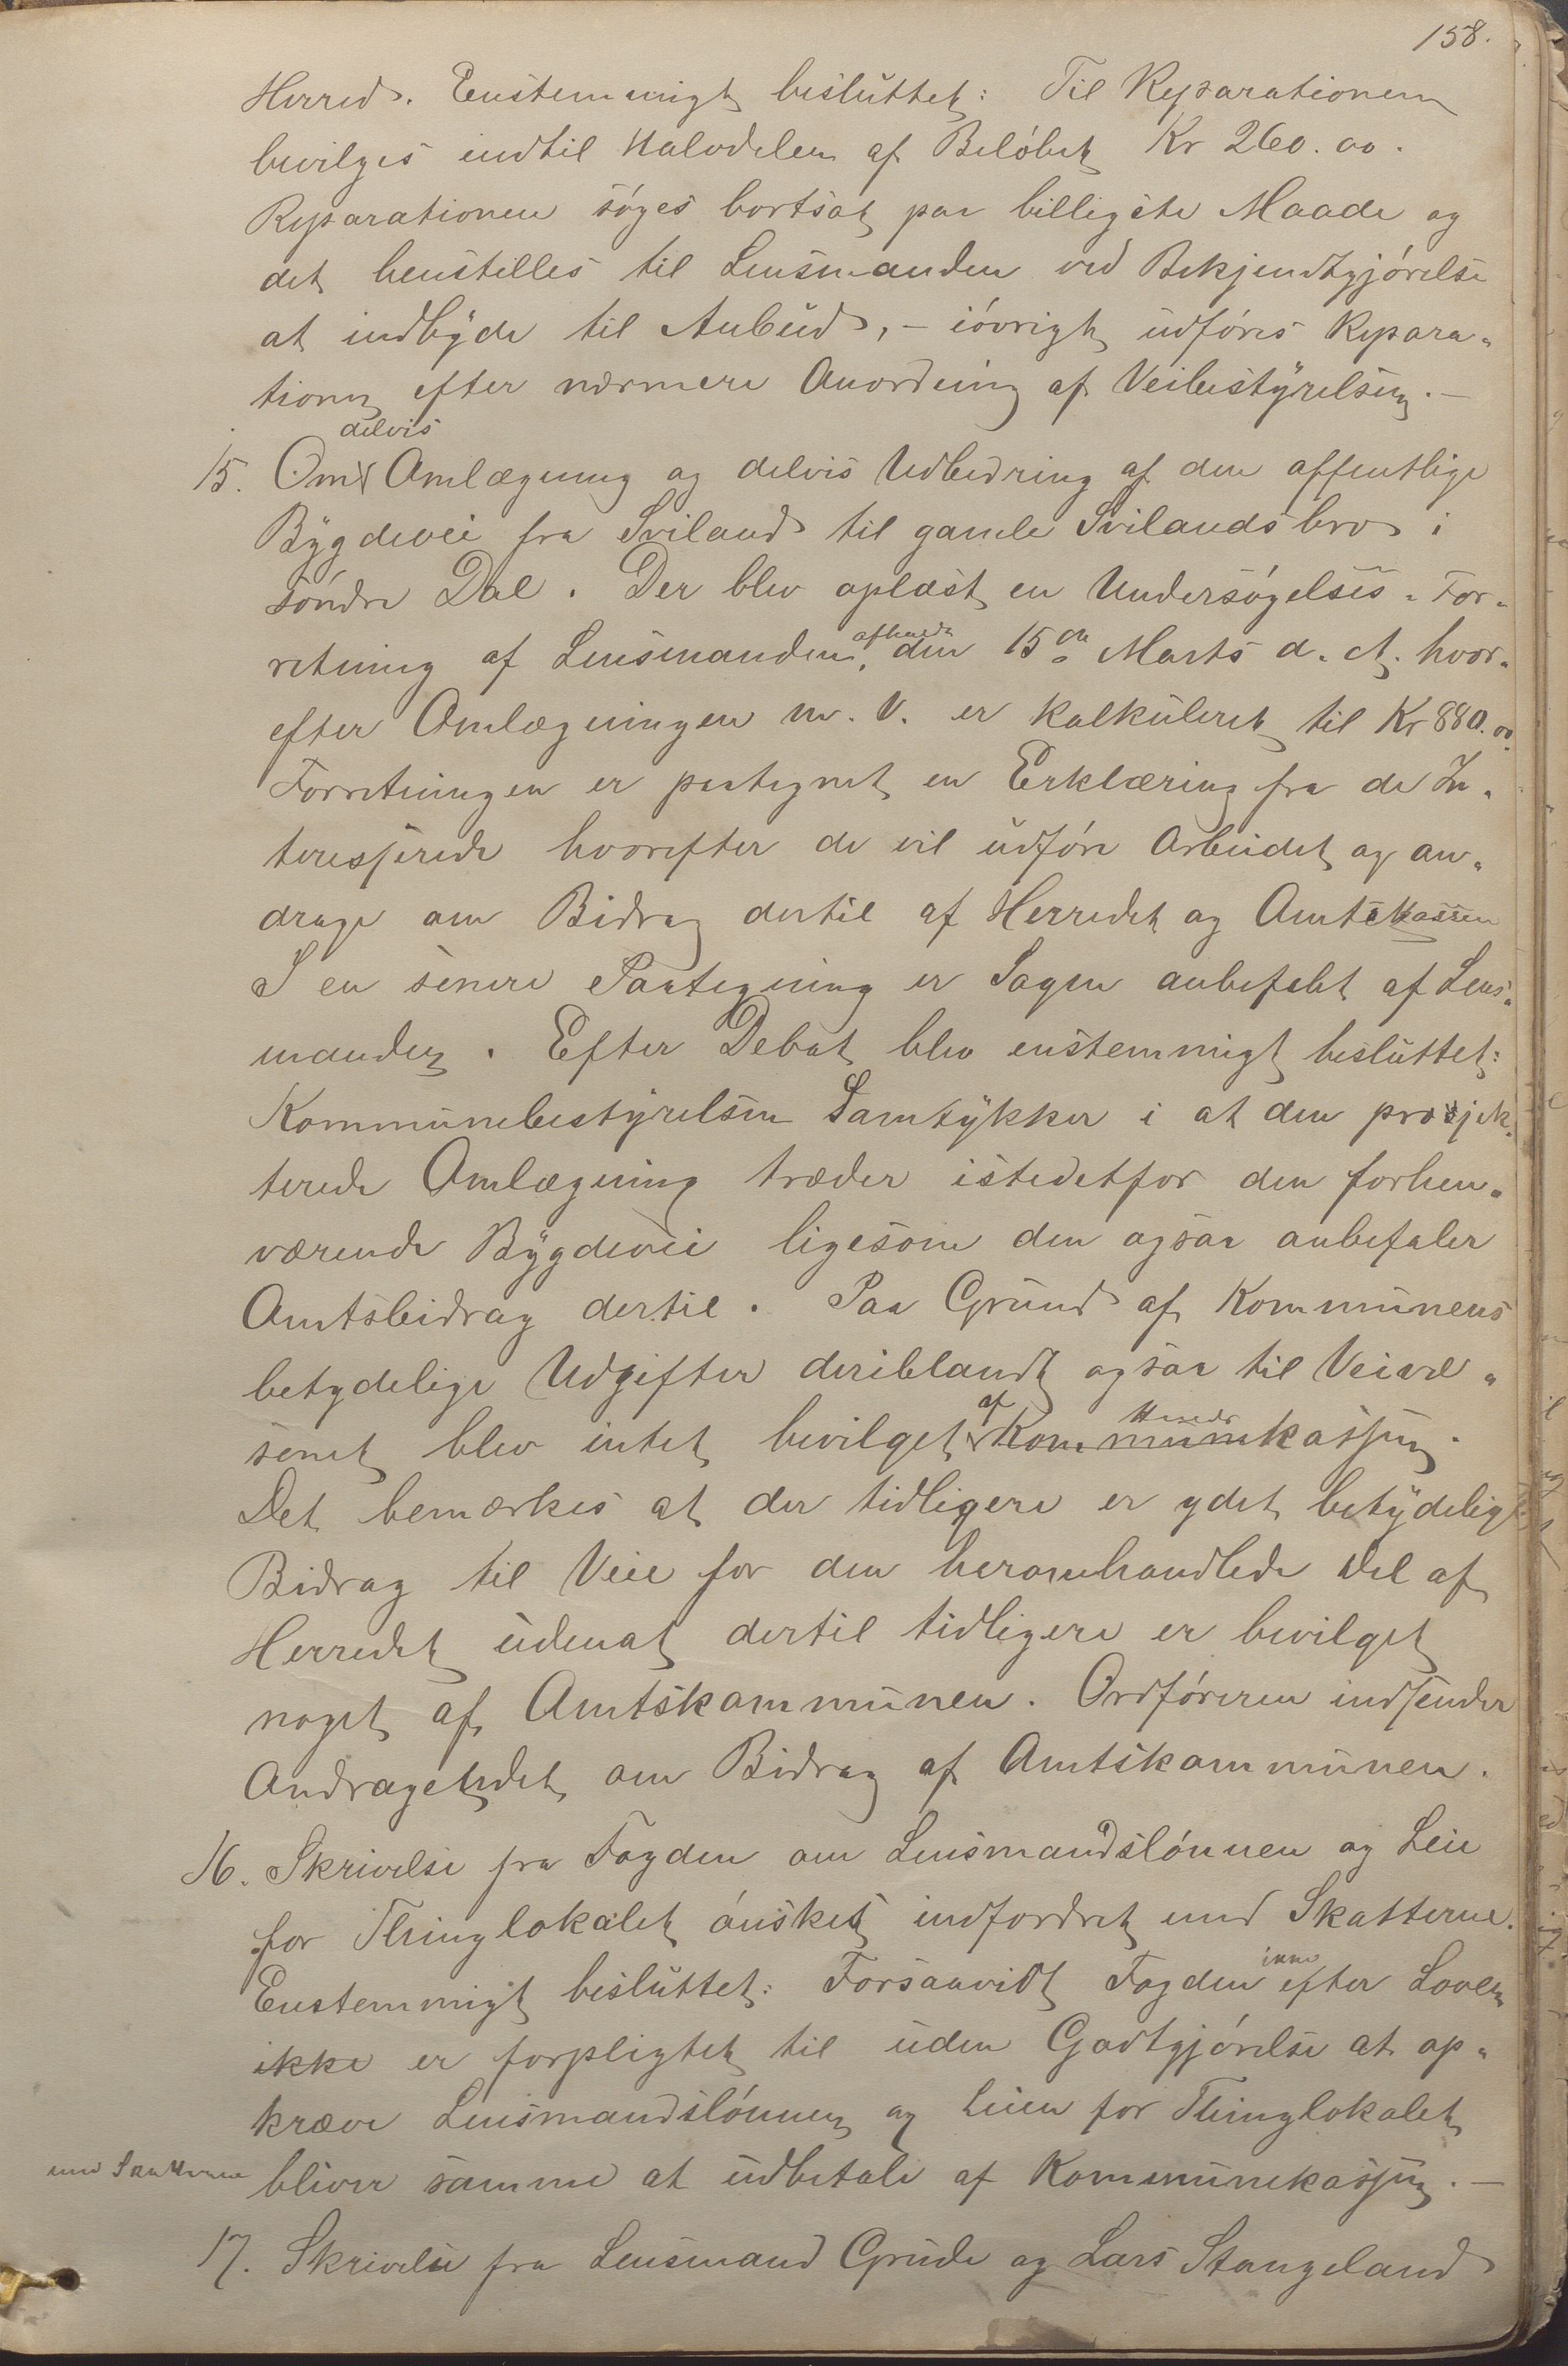 158.
Herred. Enstemmigt besluttet: Til Reparationen
bevilges indtil Halvdelen af Beløbet Kr 260.00.
Reparationen søges bortsat paa billigste Maade og
det henstilles til Lensmanden ved Bekjendtgjørelse
at indbyde til Anbud, – iøvrigt udføres Repara-
tionen efter nærmere Anordning af Veibestyrelsen. –
delvis
15. Om Omlægning og delvis Udbedring af den offentlige
Bygdevei fra Sviland til gamle Svilandsbro i
søndre Dal. Der blev oplæst en Undersøgelses-For-
retning af Lensmanden, afholdt den 15de Marts d. A. hvor-
efter Omlægningen m. V. er kalkuleret til Kr 880.00.
Forretningen er paategnet en Erklæring fra de In-
teresserede hvorefter de vil udføre Arbeidet og an-
drage om Bidrag dertil af Herredet og Amtskassen
I en senere Paategning er Sagen anbefalet af Lens-
manden. Efter Debat blev enstemmigt besluttet:
Kommunebestyrelsen Samtykker i at den prosjek-
terede Omlægning træder istedetfor den forhen-
værende Bygdevei ligesom den ogsaa anbefaler
Amtsbidrag dertil. Paa Grund af Kommunens
betydelige Udgifter deriblandt ogsaa til Veivæ-
senet blev intet bevilget af Kommunekassen.
Herreds
Det bemærkes at der tidligere er ydet betydelig
Bidrag til Veie for den heromhandlede Del af
Herredet udenat dertil tidligere er bevilget
noget af Amtskommunen. Ordføreren indsender
Andragendet om Bidrag af Amtskommunen.
16. Skrivelse fra Fogden om Lensmandslønnen og Leie
for Thinglokalet ønsket indfordret med Skatterne.
Enstemmigt besluttet: Forsaavidt Fogden ikke efter Loven
ikke er forpligtet til uden Godtgjørelse at op-
kræve Lensmandslønnen og Leien for Thinglokalet
med Skatterne bliver samme at udbetale af Kommunekassen. –
17. Skrivelse fra Lensmand Grude og Lars Stangeland